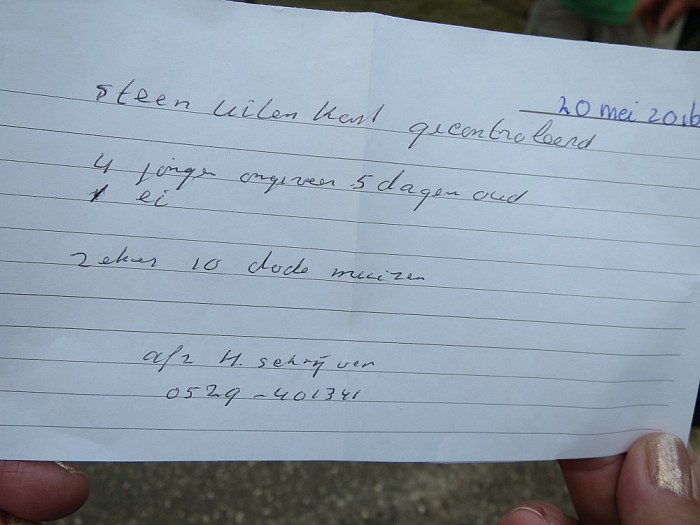 20 mei 2016
steen uilen kast gecontroleerd
4 jongen ongeveer 5 dagen oud
1 ei
zeker 10 dode muizen
afz H. schrijver
0529-401341